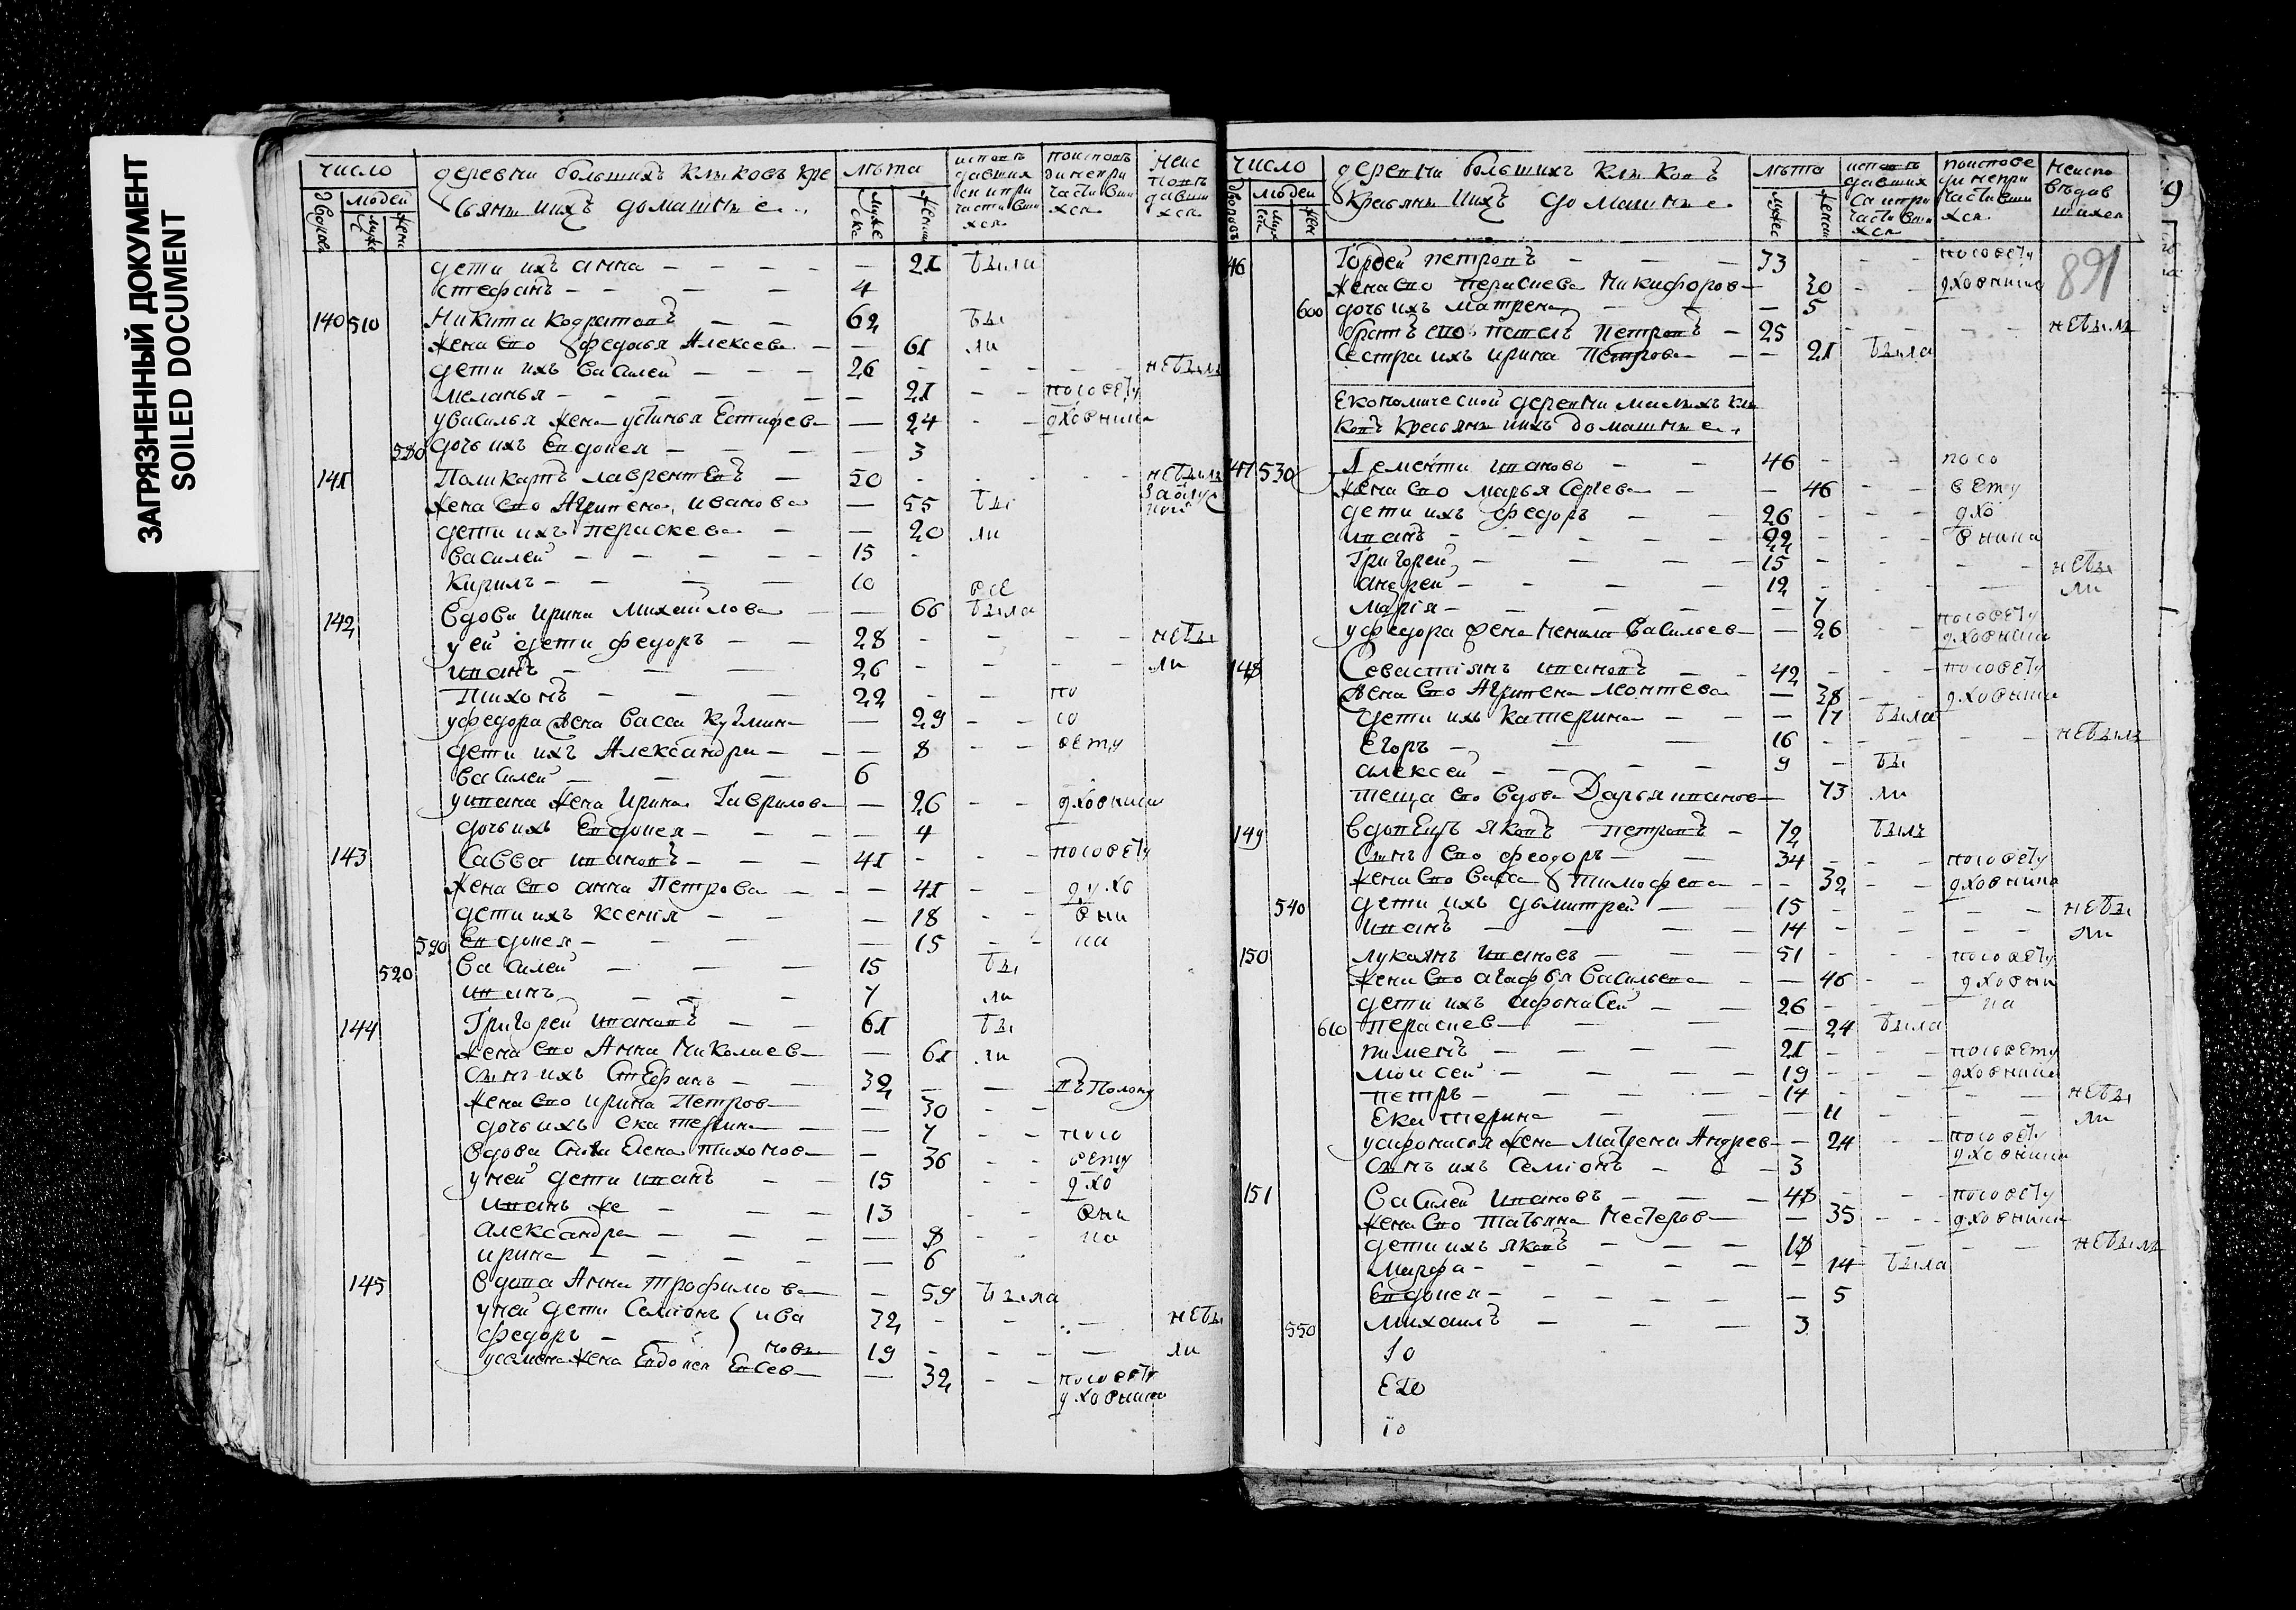 ЗАГРЯЗНЕННЫЙ ДОКУМЕНТ
SOILED DOCUMENT
число деревни большихъ клыковъ кре лѣта
людей стьяне ихъ домашние
дворовъ мужс женс мужеска женска
дети ихъ анна — 21 была
стефанъ — 4
140 510 Никита Кодратовъ — 62 бы
жена его федосья Алексеева — 61 ли
дети ихъ василей — 26 небылъ
меланья — 21 посовету
увасилья жена устинья Естифева — 24 дховника
580 дочь ихъ Евдокея — 3
141 Поликарпъ лаврентевъ — 50 небылъ
жена его Агрипена иванова — 55 бы
дети ихъ перискева — 20 ли
василей — 15
кирилъ — 10 все
142 вдова ирина Михайлова — 66 была
уей дети федоръ — 28 небы
иванъ — 26 ли
Тихонъ — 22 по
уфедора жена васса кузмина — 29 со
дети ихъ Александра — 8 вету
василей — 6
уивана жена ирина Гаврилова — 26 дховника
дочь ихъ Евдокея — 4
143 Савва ивановъ — 41 посовету
жена его анна Петрова — 41 духо
дети ихъ ксения — 18 вни
590 Евдокея — 15 ка
520 василей — 15 бы
иванъ — 7 ли
144 Григорей ивановъ — 61 бы
жена его Анна Николаева — 61 ли
сынъ ихъ Стефанъ — 32
жена его ирина Петрова — 30
дочь ихъ екатерина — 7 посо
вдова Елена тихонова — 36 вету
уней дети иванъ — 15 дхо
иванъ же — 13 вни
александра — 8 ка
ирина — 6
145 вдова Анна трофимова — 59 была
уней дети Семионъ ива 32 небы
федоръ — новы 19 ли
усемена жена Евдокея Евсева — 32 посовету
дховника
число деревни большихъ клыковъ лѣта
людей крестьяне ихъ домашние
891
46 Гордей петровъ — 33 посовету
жена его параскева Никифорова — 30 дховника
600 дочь ихъ матрена — 5
братъ его павелъ Петровъ — 25 небылъ
сестра ихъ ирина Петрова — 21 была
Економической деревни малыхъ клы
ковъ крестьяне ихъ домашние
147 530 Дементи иваново — 46 посо
жена его марья Сергева — 46 вету
дети ихъ федоръ — 26 дхо
иванъ — 22 вника
Григорей — 15 небы
андрей — 12 ли
мария — 7
уфедора жена Ненила васильева — 26 посовету
дховника
148 Севастиянъ ивановъ — 42 посовету
жена его Агрипена леонтева — 38 дховника
дети ихъ катерина — 17 была
Егоръ — 16 небылъ
алексей — 9 бы
теща его вдова Дарья иванова — 73 ли
149 вдовецъ яковъ петровъ — 72 былъ
сынъ его феодоръ — 34 посовету
жена его васса тимофева — 32 дховника
540 дети ихъ дьмитрей — 15 небы
иванъ — 14 ли
150 лукоянъ ивановъ — 51 посовету
жена его агафья васильева — 46 дховни
дети ихъ афонасей — 26 ка
610 параскева — 24 была
пименъ — 21 посовету
моисей — 19 дховника
петръ — 14 небы
Екатерина — 11 ли
уафонасья жена матрена Андрева — 24 посовету
сынъ ихъ Семионъ — 3 дховника
151 василей ивановъ — 48 посовету
жена его татьяна Нестерова — 35 дховника
дети ихъ яковъ — 18 небылъ
марфа — 14 была
Евдокея — 5
550 михаилъ — 3